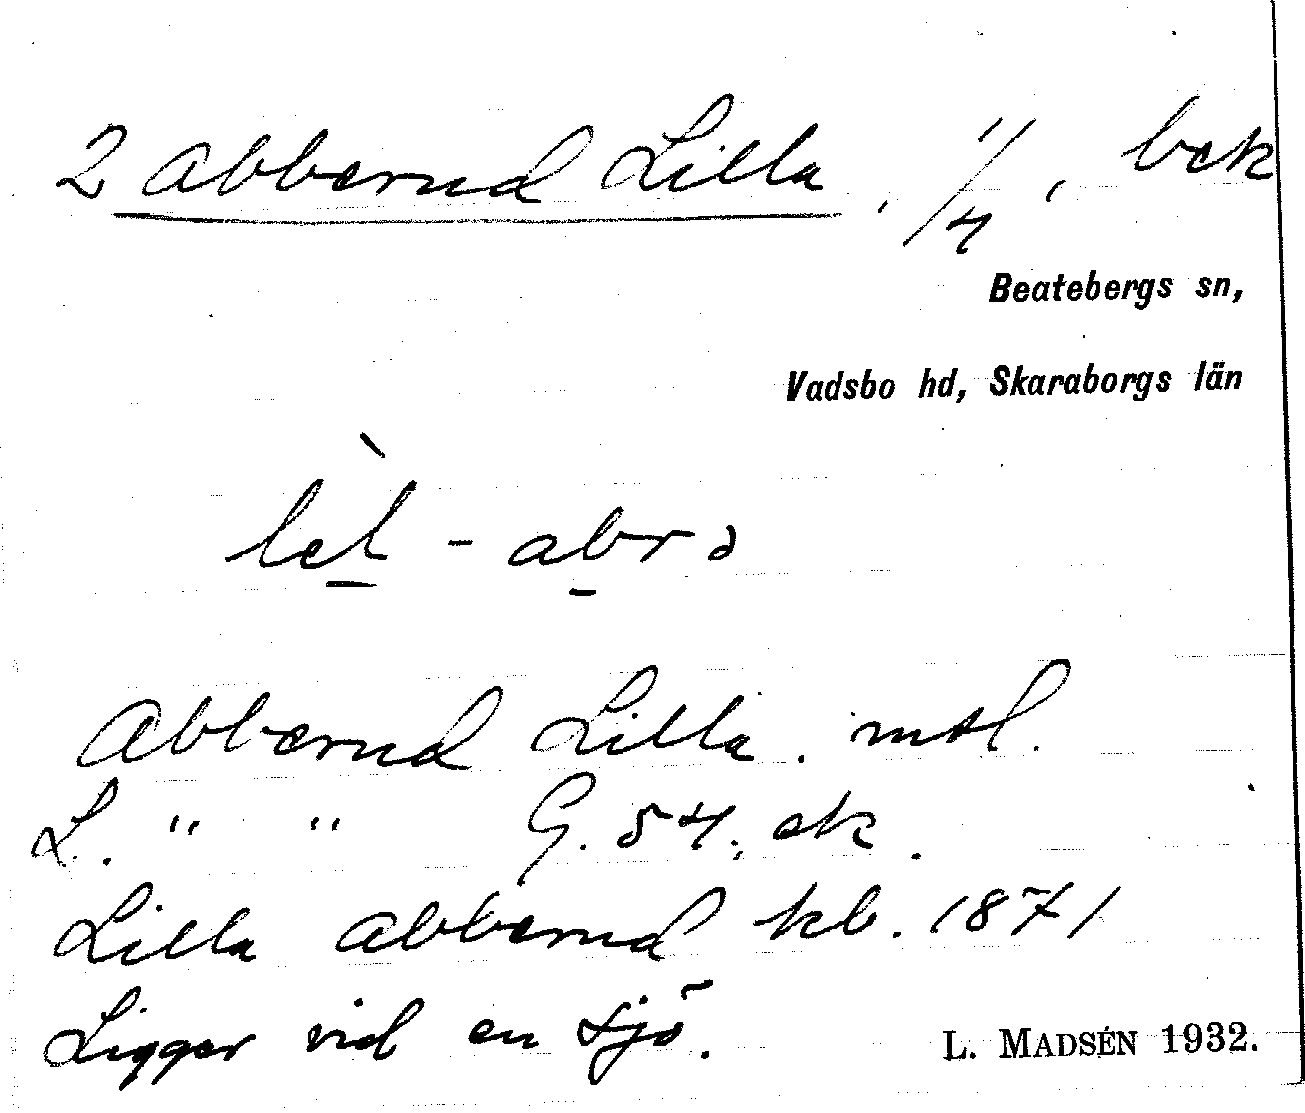 2 Abberud Lilla, 1/4, bek
Beatebergs sn,
Vadsbo hd, Skaraborgs län
lèt - abrə
Abberud Lilla. mtl.
L. " " G. 54. ek.
Lilla Abberud kb. 1871
Ligger vid en sjö.
L. MADSÉN 1932.